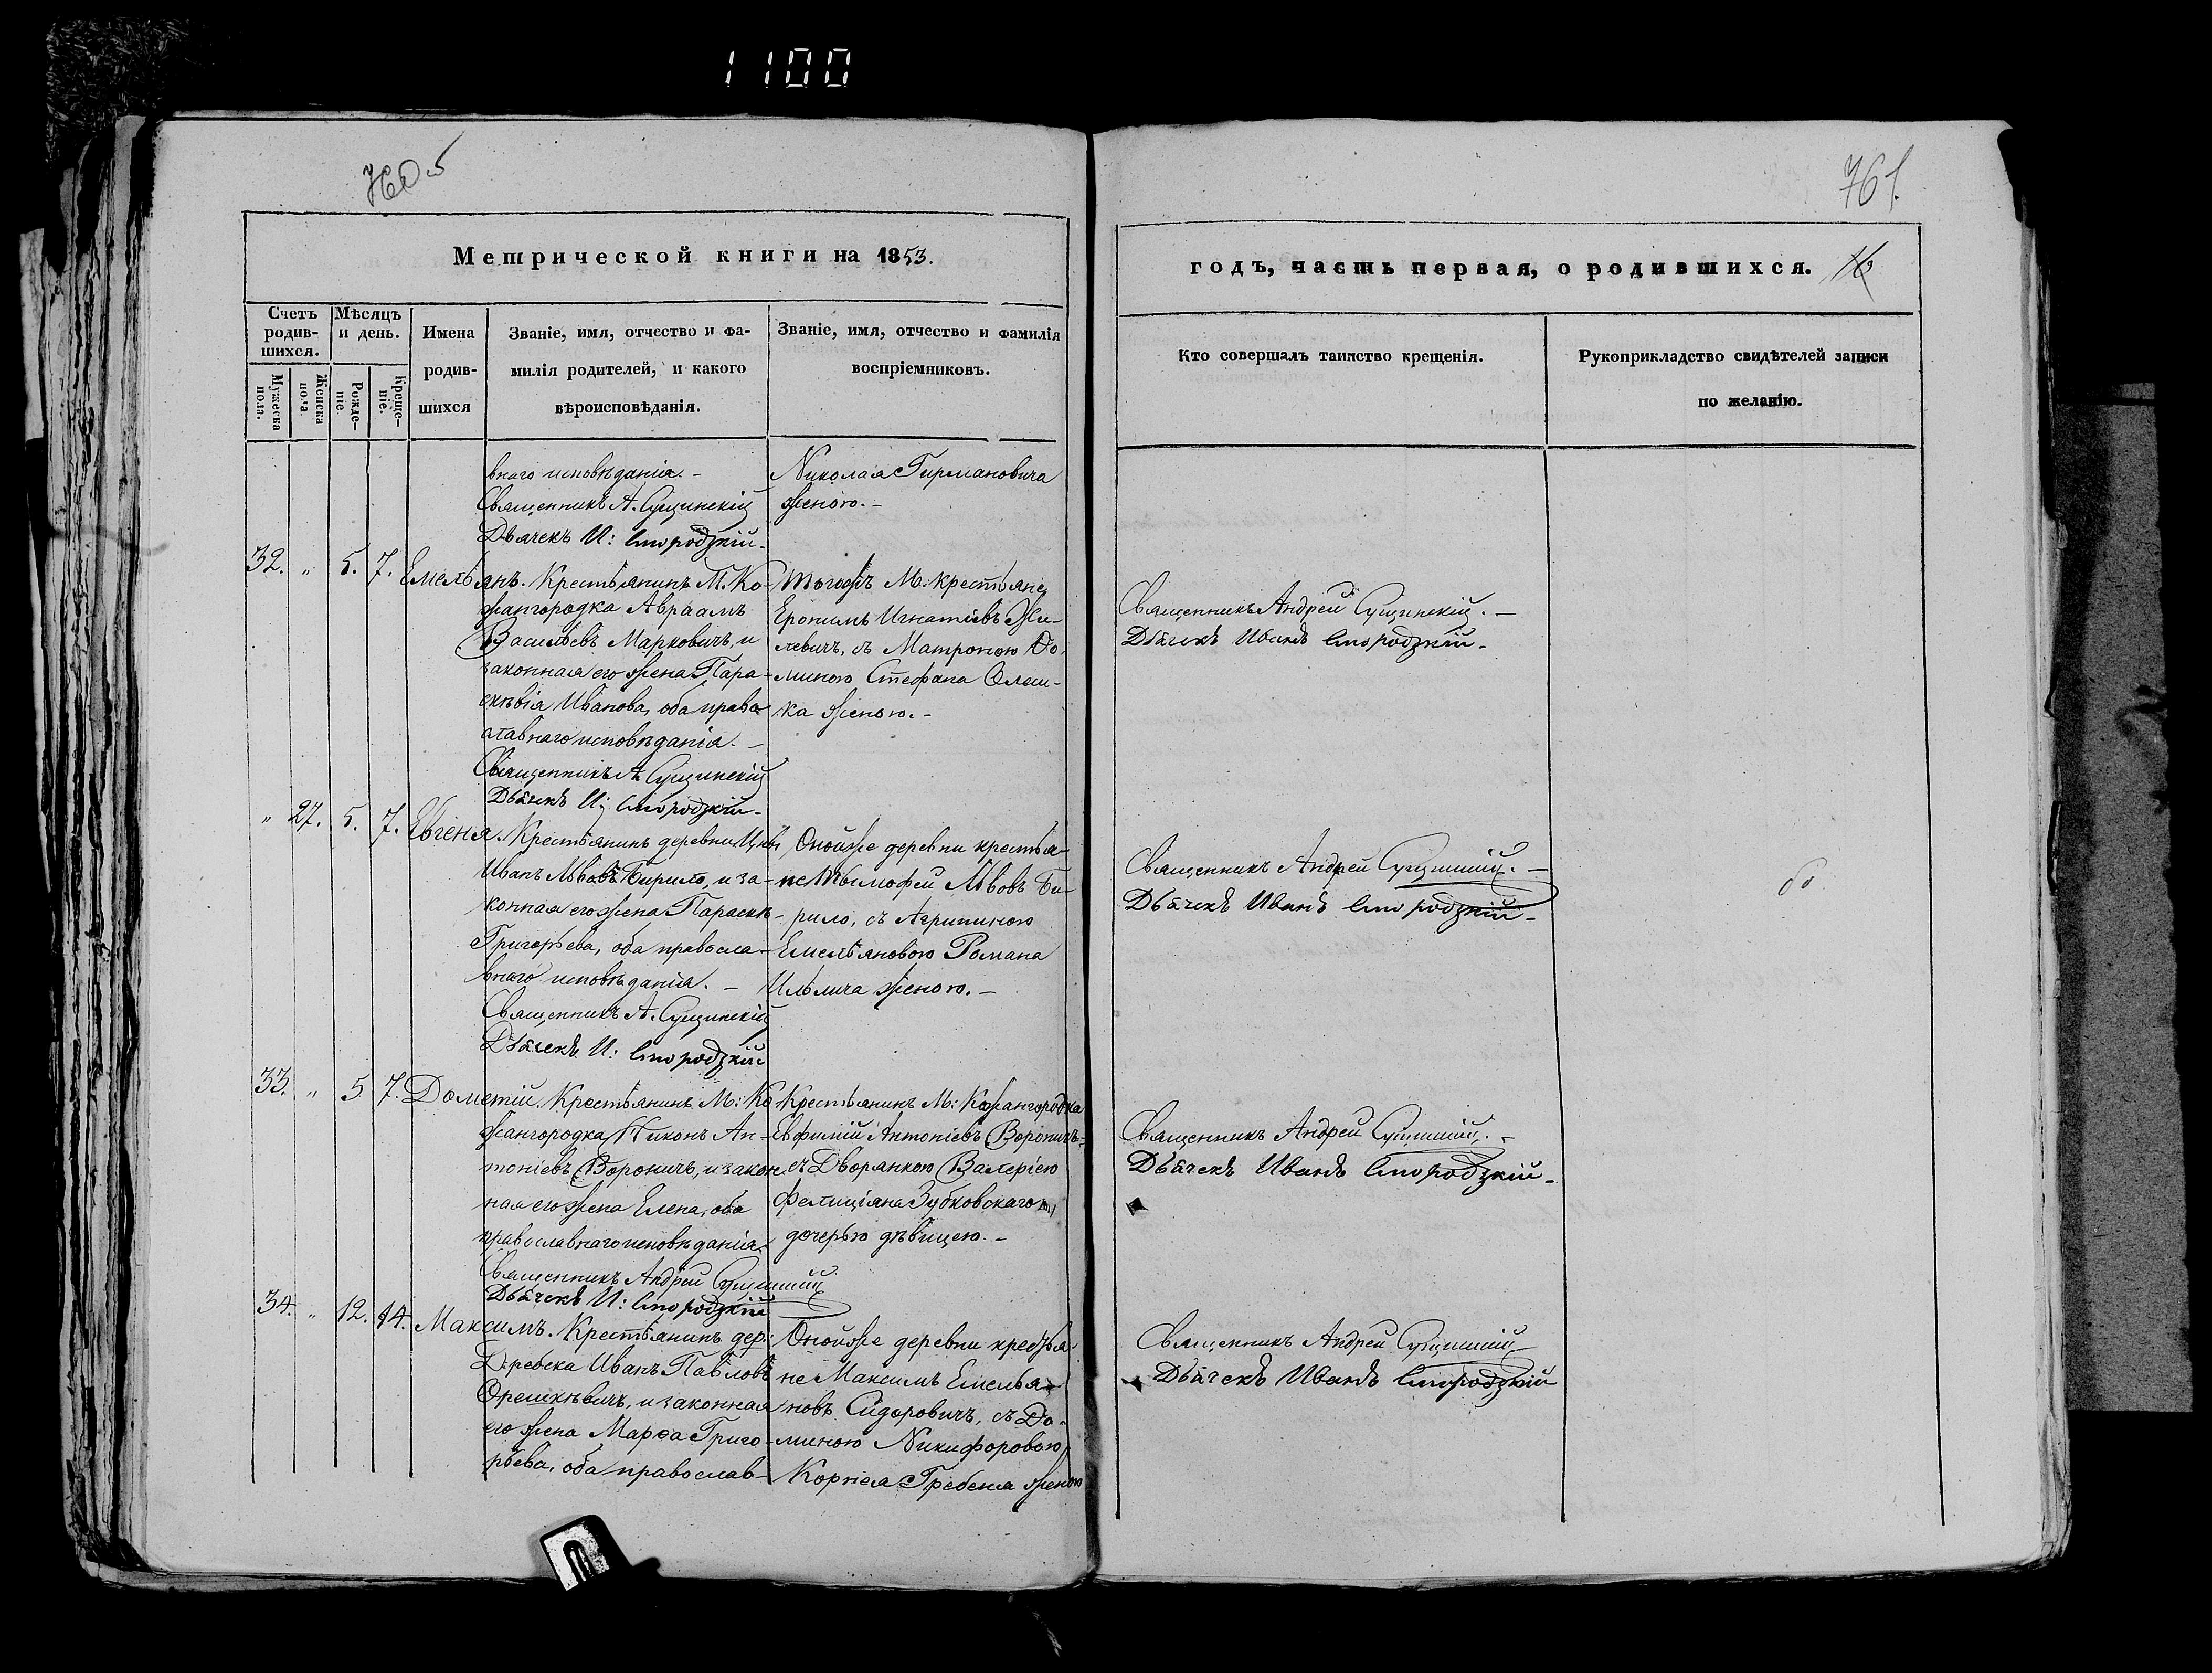 1100
760 б
761.
Метрической книги на 1853.
годъ, часть первая, о родившихся. 16
Счетъ родив-шихся.
Мѣсяцъ и день.
Имена родив-шихся
Званіе, имя, отчество и фа-
милія родителей, и какого
вѣроисповѣданія.
Званіе, имя, отчество и фамилія
воспріемниковъ.
Мужеска пола.
Женска пола.
Рожде-ніе.
Креще-ніе.
Кто совершалъ таинство крещенія.
Рукоприкладство свидѣтелей записи
по желанію.
внаго исповѣданія.-
Священникъ А. Сущинскій
Дьячекъ И:
Николая Гирмановича
женою.-
32. " 5. 7. Емельянъ. Крестьянинъ М. Ко-
жангородка Авраамъ
Васильевъ Марковичъ, и
законная его жена Пара-
скѣвія Иванова, оба право
славнаго исповѣданія.-
Священникъ А Сущинскій
Дьячекъ И:
Тогожъ М: крестьяне,
Еронимъ Игнатіевъ Жи-
левичъ, съ Матроною До
миною Стефана Олеш-
ка женою.-
Священникъ Андрей Сущинскій.-
Дьячекъ Иванъ
" 27. 5. 7. Евгенія. Крестьянинъ деревни Цны
Иванъ Львовъ Бирило, и за-
конная его жена Параскѣ-
Григорьева, оба правосла-
внаго исповѣданія.-
Священникъ А. Сущинскій
Дьячекъ И:
Онойже деревни крестья-
не Тымофей Львовъ Би-
рило, съ Агрипиною
Емельяновою Романа
Ильлича женою.-
Священникъ Андрей Сущинскій.-
Дьячекъ Иванъ
33. " 5 7. Дометій. Крестьянинъ М: Ко
жангородка Никонъ Ан-
тоніевъ Вороничъ, и закон
ная его жена Елена, оба
православнаго исповѣданія.
Священникъ Андрей Сущинскій
Дьячекъ И:
Крестьянинъ М: Кожангородка
Евфимій Антоніевъ Вороничъ-
съ Дворянкою Валеріею
Фелиціяна Зубковскаго
дочерью дѣвицею.-
Священникъ Андрей Сущинскій.-
Дьячекъ Иванъ
34. " 12. 14. Максимъ. Крестьянинъ дер:
Дребска Иванъ Павловъ
Орешкѣвичъ, и законная
его жена Марѳа Григо-
рьева, оба православ-
Онойже деревни крестья-
не Максимъ Емелья-
новъ Сидоровичъ, съ До-
миною Никифоровою
Корнея Гребеня женою
Священникъ Андрей Сущинскій
Дьячекъ Иванъ